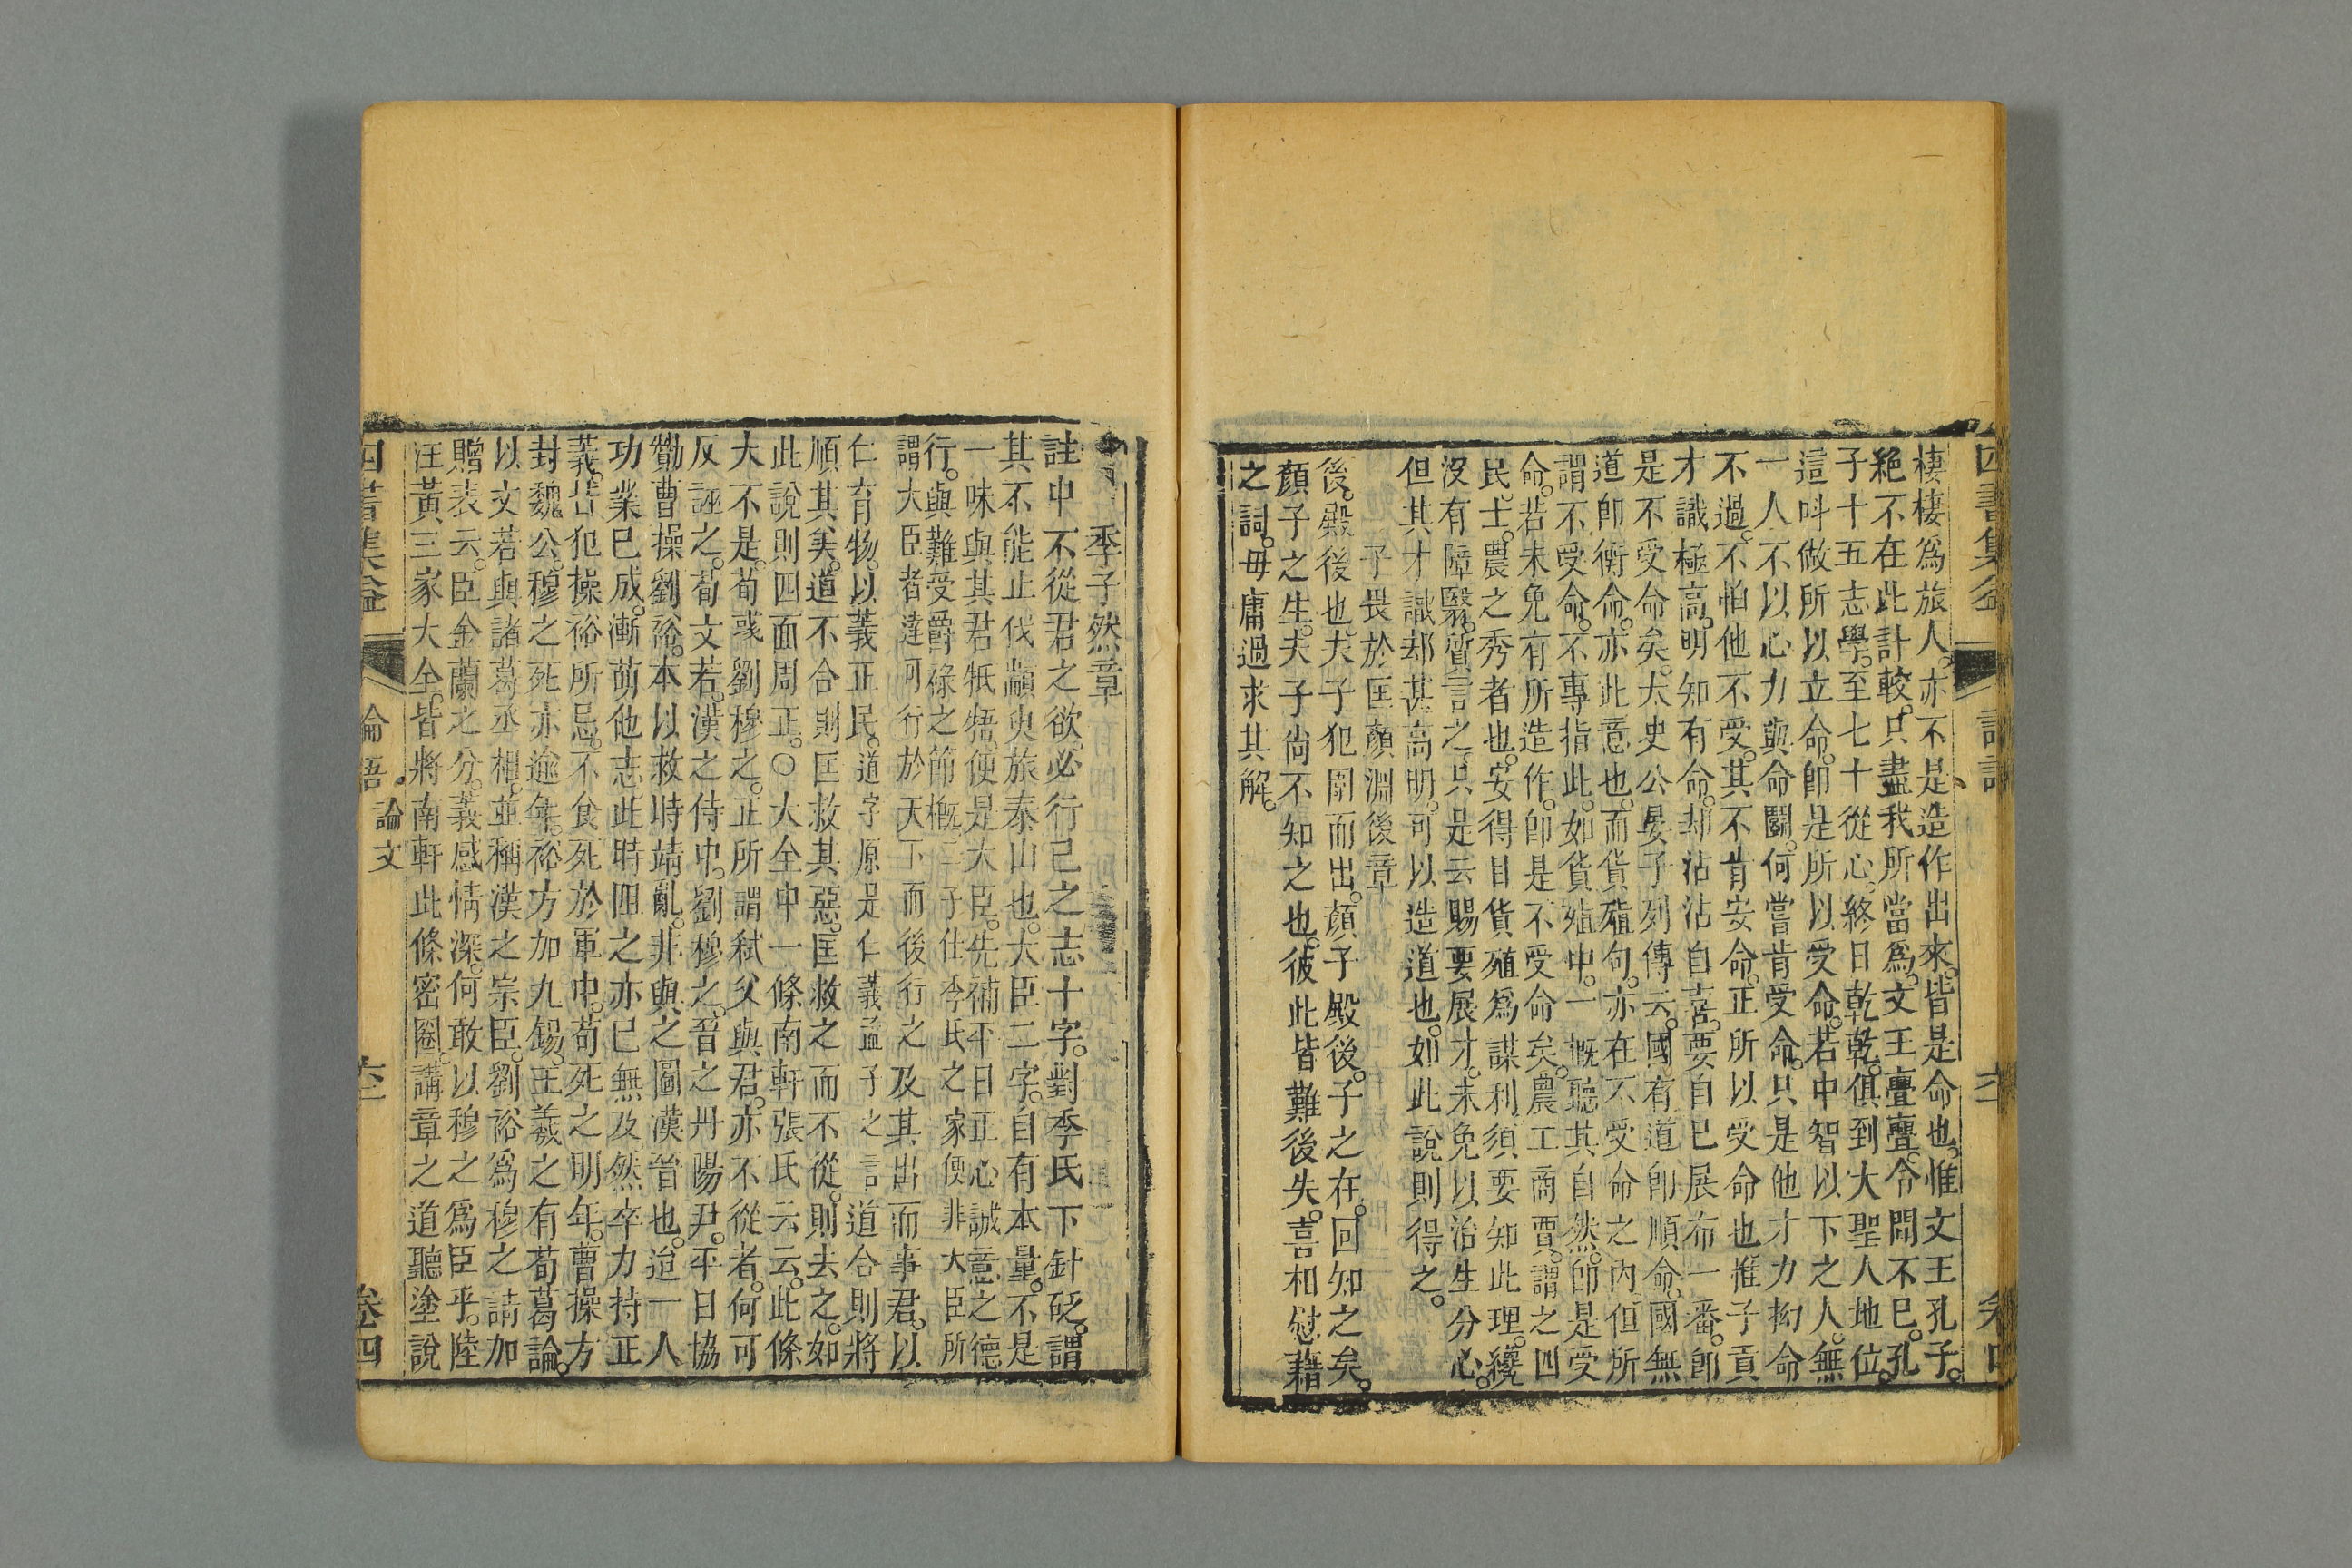 棲棲爲旅人。亦不是造作出來。皆是命也。惟文王孔子。
絕不在此計較。只盡我所當爲。文王亹亹。令問不已。孔
子十五志學。至七十從心。終日乾乾。俱到大聖人地位。
這呌做所以立命。卽是所以受命。若中智以下之人。無
一人不以心力與命鬭。何嘗肯受命。只是他才力拗命
不過。不怕他不受。其不肯安命。正所以受命也。惟子貢
才識極高。明知有命。却沾沾自喜。要自己展布一番。卽
是不受命矣。太史公晏子列傳云。國有道卽順命。國無
道卽衡命。亦此意也。而貨殖句。亦在不受命之內。但所
謂不受命。不專指此。如貨殖中。一概聽其自然。卽是受
命。若未免有所造作。卽是不受命矣。農工商賈。謂之四
民。士農之秀者也。安得目貨殖爲謀利。須要知此理。纔
沒有障翳。質言之。只是云賜要展才。未免以治生分心。
但其才識却甚高明。可以造道也。如此說則得之。
子畏於匡顏淵後章
後。殿後也。夫子犯圍而出。顏子殿後。子之在。回知之矣。
顏子之生。夫子尙不知之也。彼此皆難後失。喜相慰藉
之詞。毋庸過求其解。
季子然章
註中不從君之欲。必行己之志十字。對季氏下針砭。謂
其不能止伐顓臾旅泰山也。大臣二字。自有本量。不是
一味與其君牴牾。便是大臣。先補平日正心誠意之德
行。與難受爵祿之節概。二子仕季氏之家。便非大臣。所
謂大臣者。達可行於天下而後行之。及其出而事君。以
仁育物。以義正民。道字原是仁義。孟子之言道。合則將
順其美。道不合則匡救其惡。匡救之而不從。則去之。如
此說則四面周正。〇大全中一條南軒張氏云云。此條
大不是。荀彧劉穆之。正所謂弒父與君。亦不從者。何可
反誣之。荀文若。漢之侍中。劉穆之。晉之丹陽尹。平日協
勷曹操劉裕。本以救時靖亂。非與之圖漢晉也。迨一人
功業已成。漸萌他志。此時阻之亦已無及。然卒力持正
義。甘犯操裕所忌。不食死於軍中。荀死之明年。曹操方
封魏公。穆之死亦逾年。裕方加九錫。王羲之有荀葛論。
以文若與諸葛丞相。並稱漢之宗臣。劉裕爲穆之請加
贈表云。臣金蘭之分。義感情深。何敢以穆之爲臣乎。陸
汪黃三家大全。皆將南軒此條密圈。講章之道聽塗說
四書集益
論語
論文
卷四